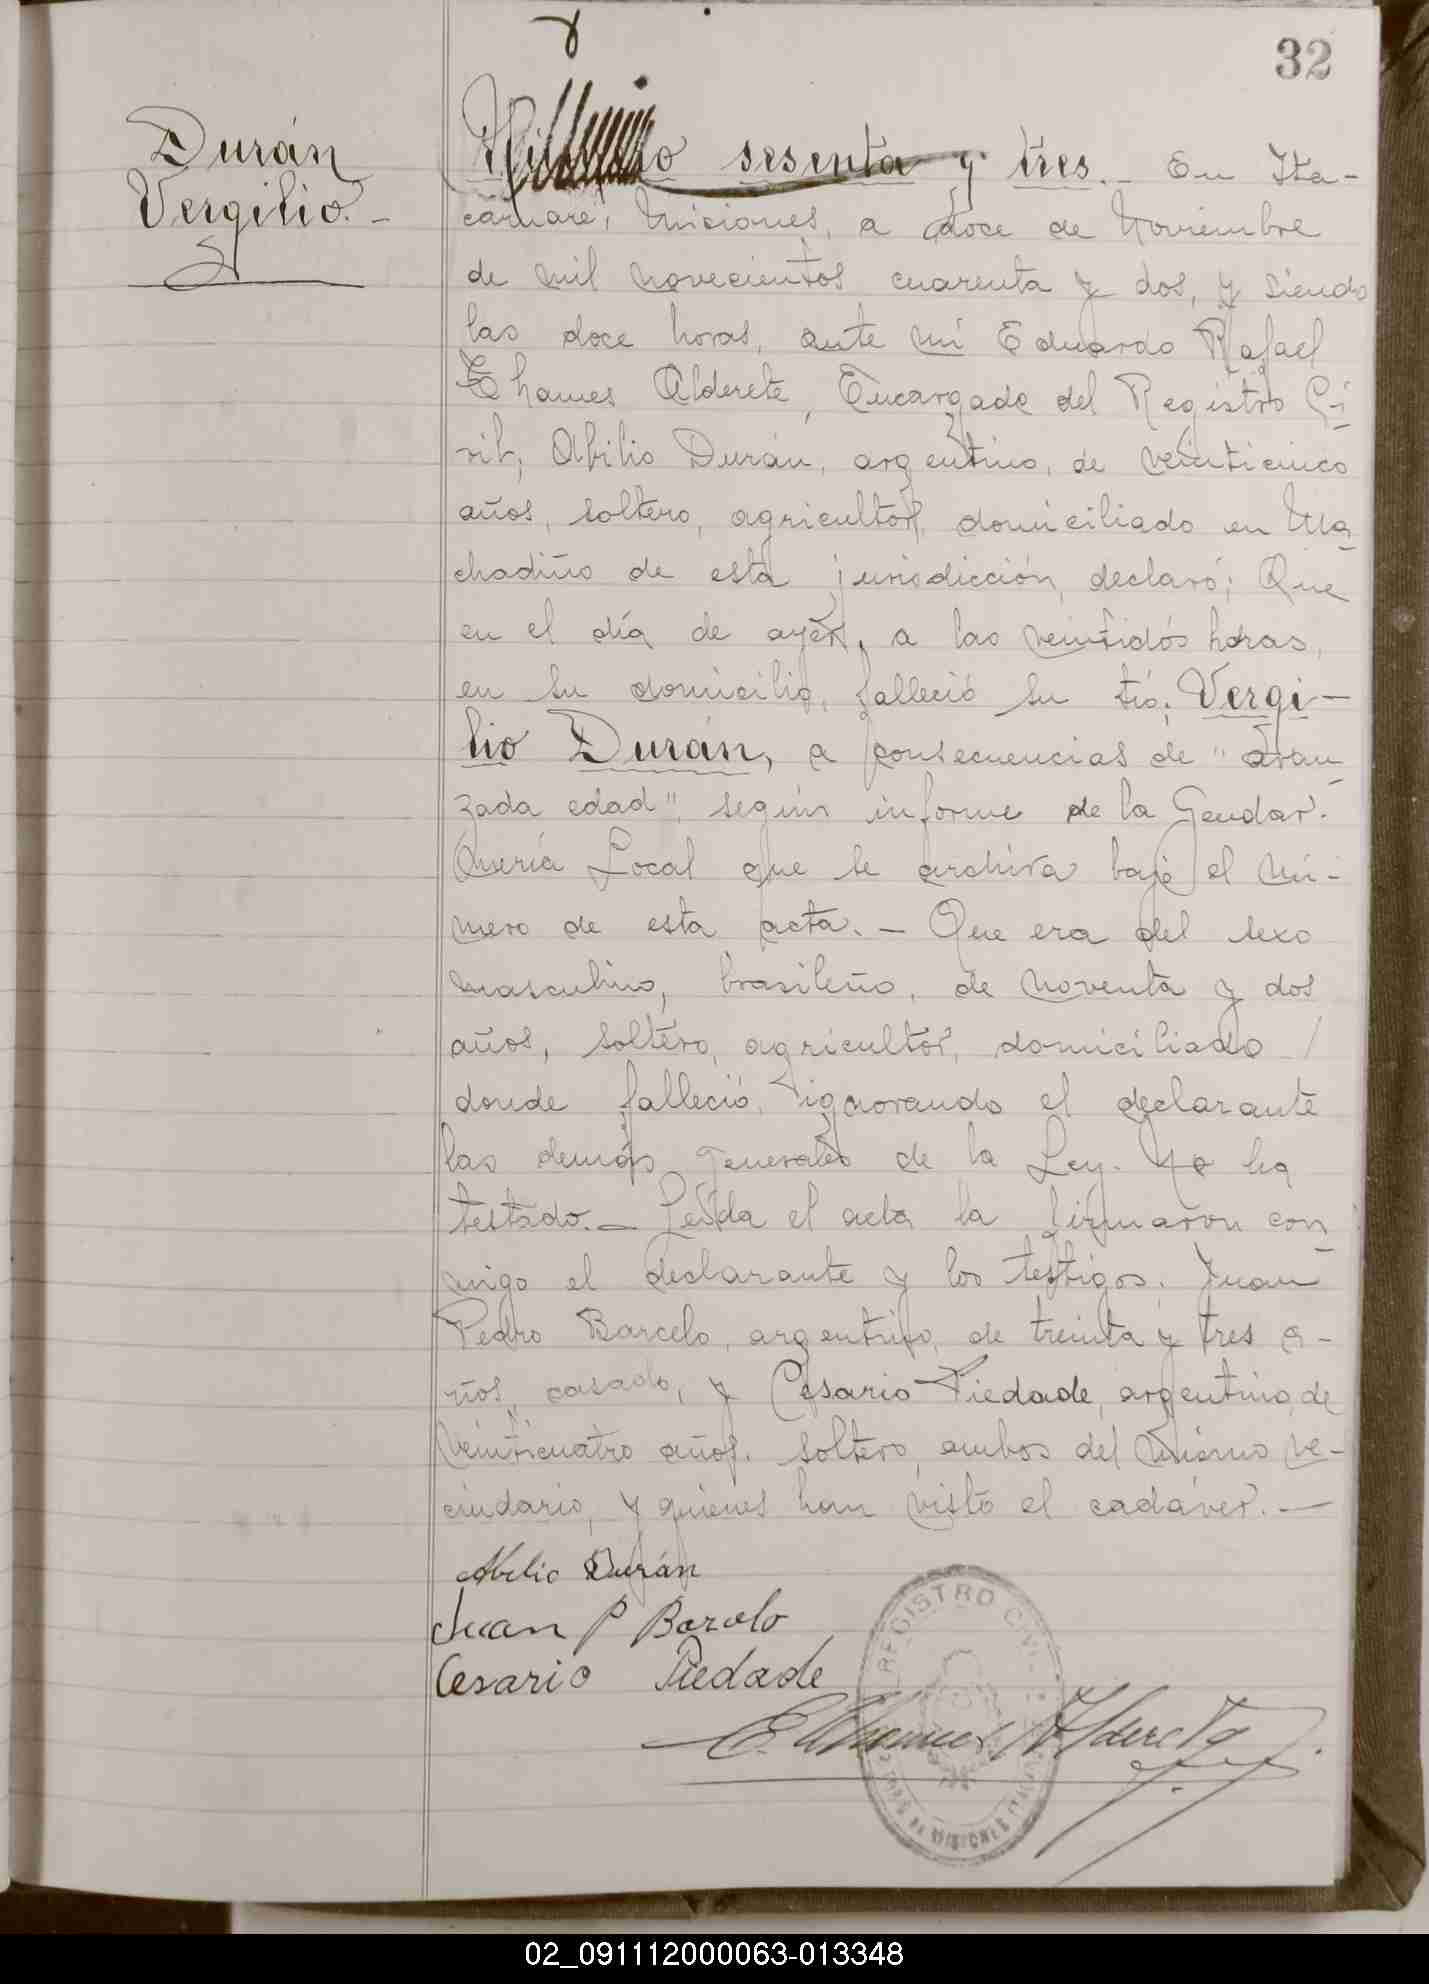 32
Durán
Vergilio.-
Número sesenta y tres.- En Ita-
caruaré, Misiones, a doce de Noviembre
de mil novecientos cuarenta y dos, y siendo
las doce horas, ante mí Eduardo Rafael
Thames Alderete, Encargado del Registro Ci-
vil; Abilio Durán, argentino, de veinticinco
años, soltero, agricultor, domiciliado en Ma-
chadiño de esta jurisdicción, declaró; Que
en el día de ayer, a las veintidós horas,
en su domicilio, falleció su tío; Vergi-
lio Durán, a consecuencias de "avan-
zada edad", según informe de la Gendar-
mería Local que se archiva bajo el nú-
mero de esta acta.- Que era del sexo
masculino, brasileño, de noventa y dos
años, soltero, agricultor, domiciliado /
donde falleció, ignorando el declarante
las demás generales de la Ley. No ha
testado.- Leída el acta la firmaron con
migo el declarante y los testigos; Juan
Pedro Barcelo, argentino, de treinta y tres a-
ños, casado, y Cesario Piedade, argentino, de
veinticuatro años, soltero, ambos del mismo ve-
cindario, y quienes han visto el cadáver.-
Abilio Durán
Juan P Barcelo
Cesario Piedade
E. Thames Alderete
REGISTRO CIVIL
MISIONES
02_091112000063-013348